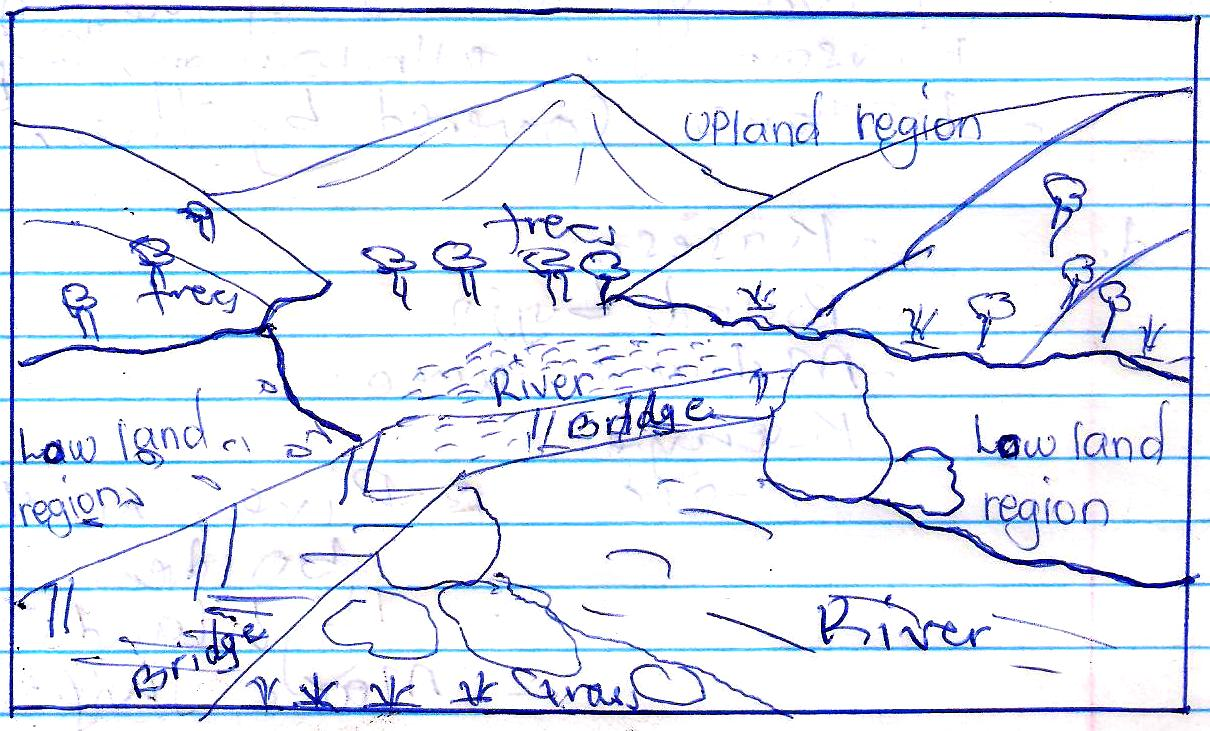 Upland region
trees
trees
River
Bridge
Low land
region
Low land
region
Bridge
River
Grass